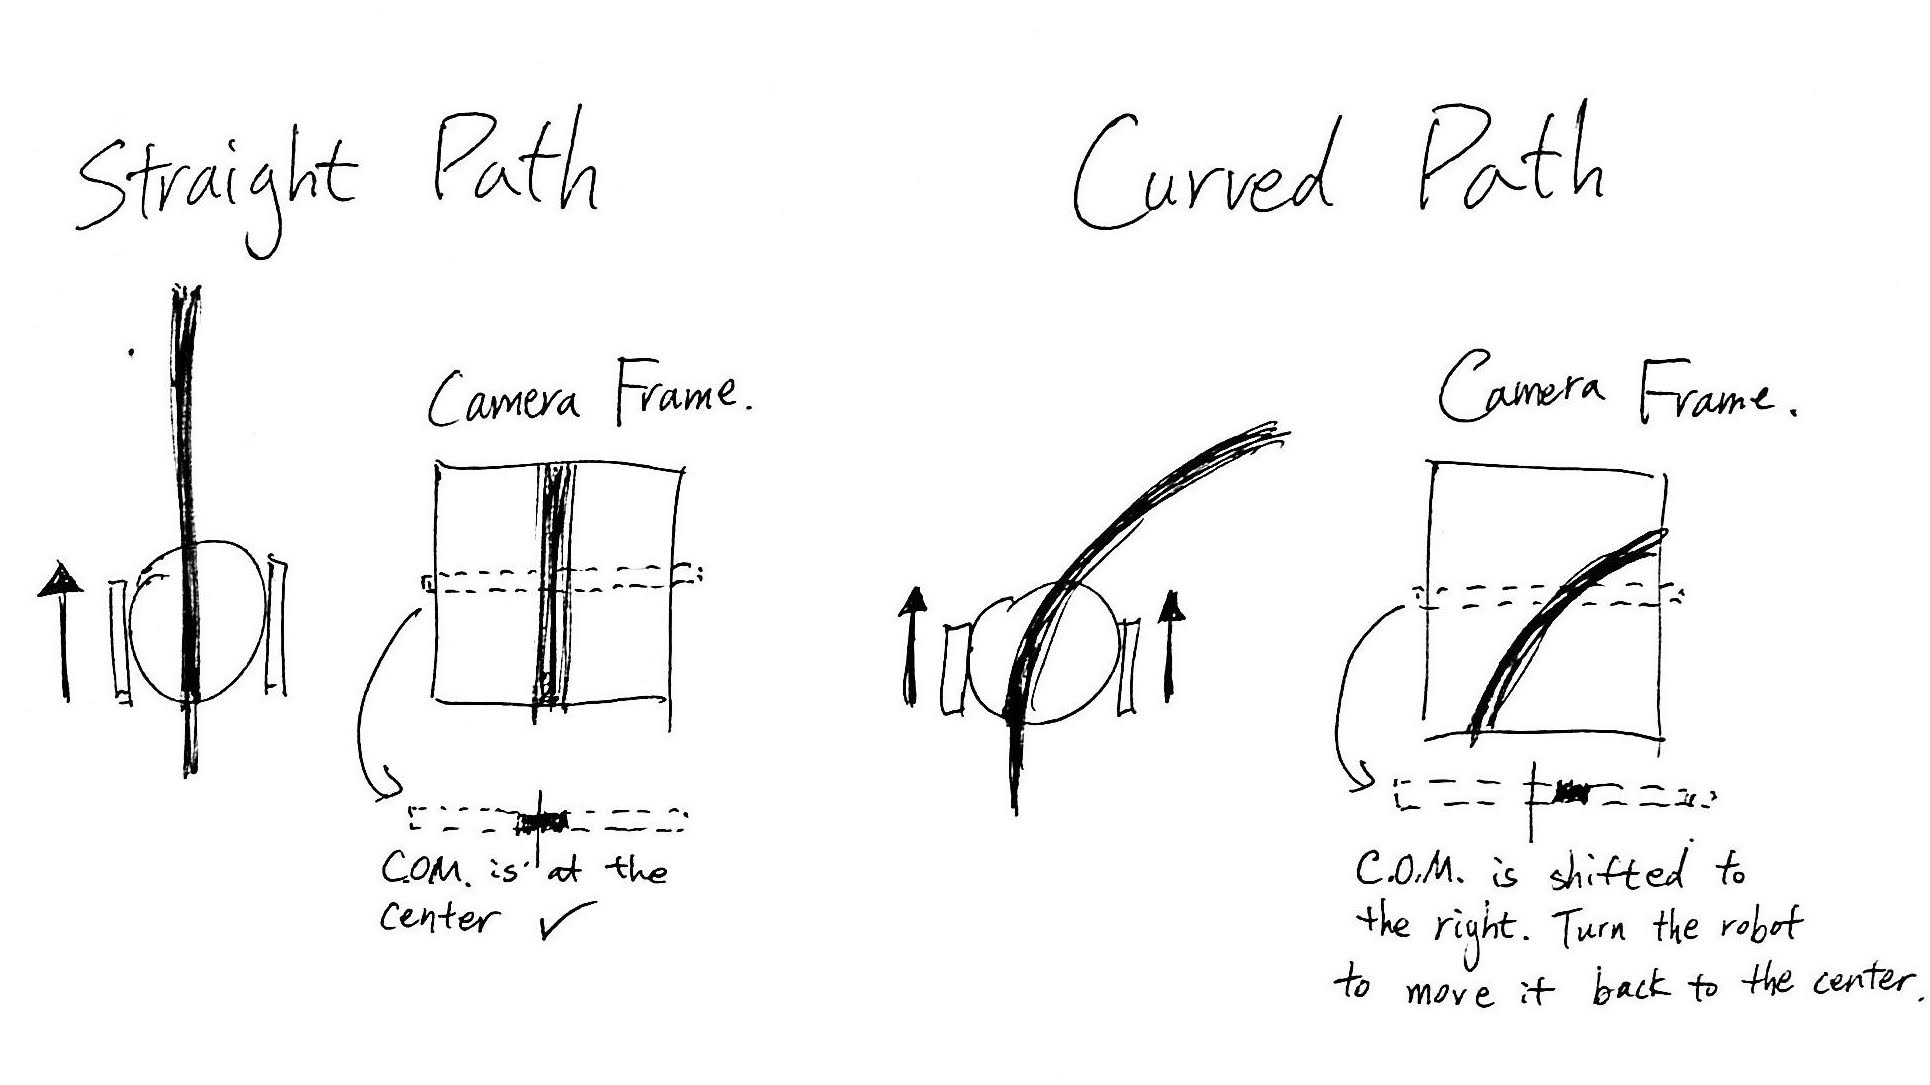 Straight Path
Camera Frame.
C.O.M. is at the
center ✓
Curved Path
Camera Frame.
C.O.M. is shifted to
the right. Turn the robot
to move it back to the center.